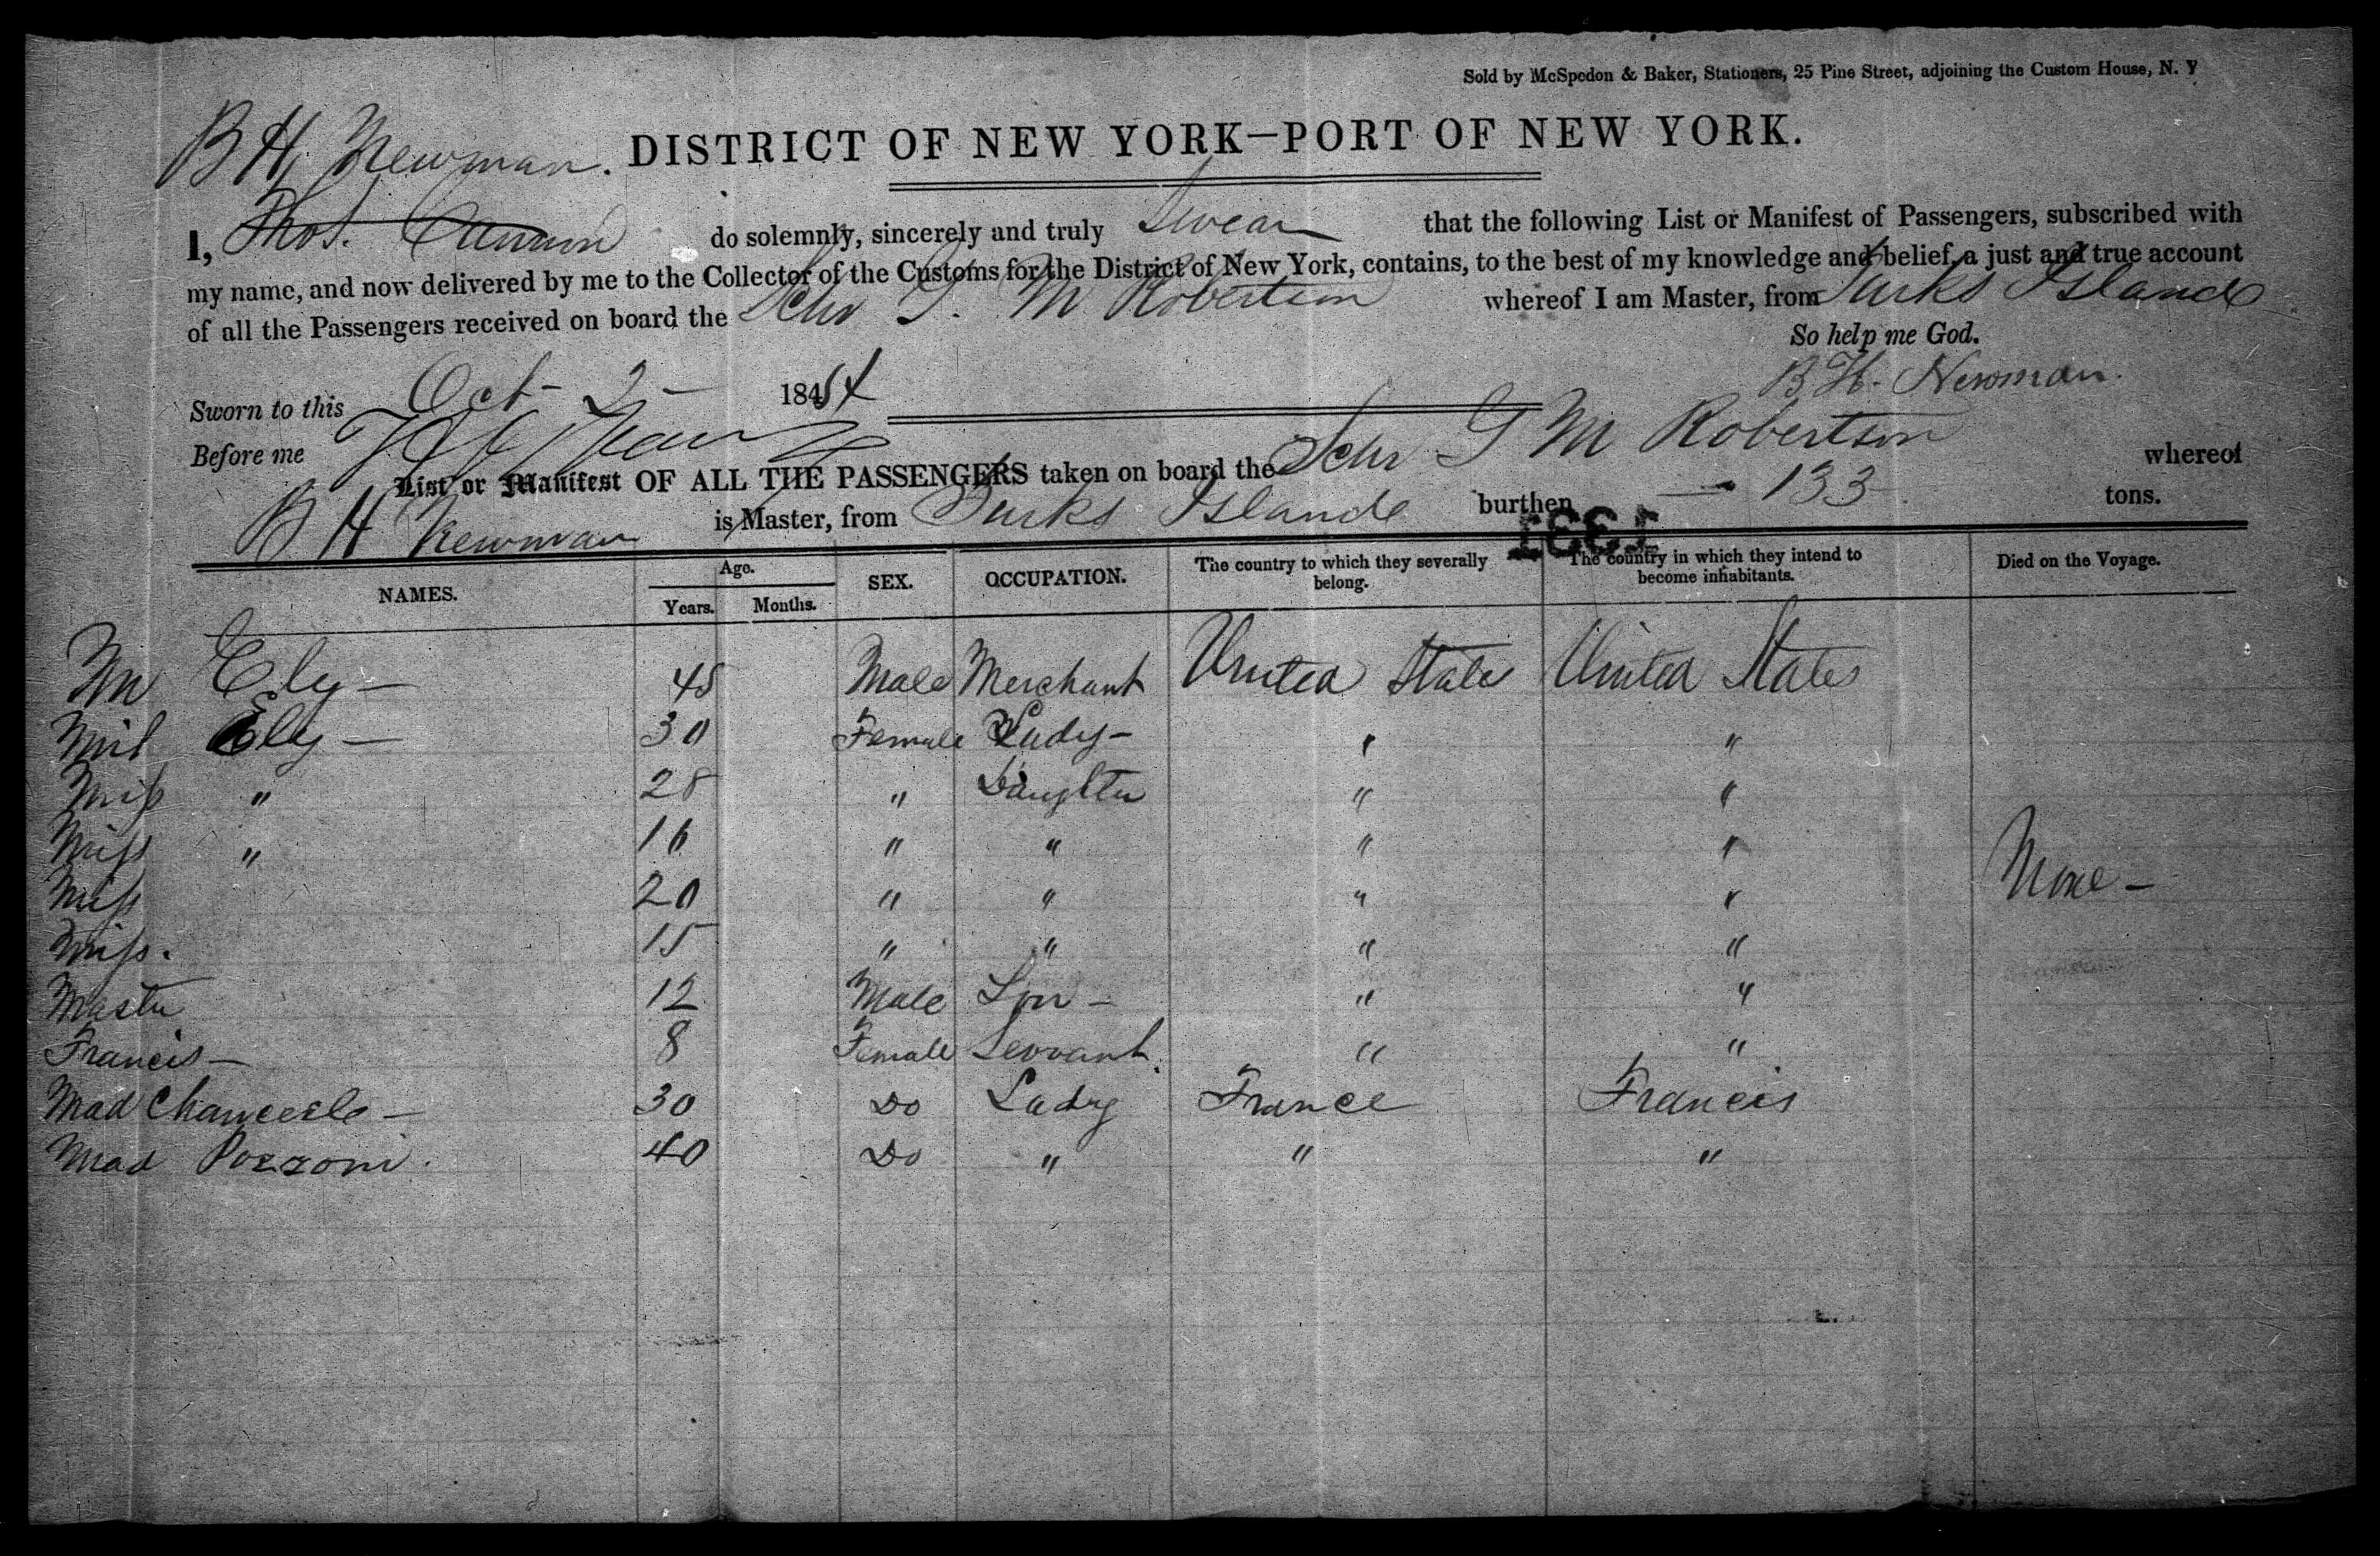 Sold by McSpedon & Baker, Stationers, 25 Pine Street, adjoining the Custom House, N. Y
B H Newman. DISTRICT OF NEW YORK—PORT OF NEW YORK.
I, Thos. do solemnly, sincerely and truly Swear that the following List or Manifest of Passengers, subscribed with
my name, and now delivered by me to the Collector of the Customs for the District of New York, contains, to the best of my knowledge and belief, a just and true account
of all the Passengers received on board the Schr G. M Robertson whereof I am Master, from Turks Island
So help me God.
Sworn to this Oct 2 - 1854 B. H. Newman.
Before me
List or Manifest OF ALL THE PASSENGERS taken on board the Schr G M Robertson whereof
B H Newman is Master, from Turks Island burthen — 133 tons.
1331
NAMES. Age. Years. Months. SEX. OCCUPATION. The country to which they severally belong. The country in which they intend to become inhabitants. Died on the Voyage.
Mr Ely — 45 Male Merchant United States United States
Mrs Ely — 30 Female Lady — " "
Miss " 28 " Daughter " "
Miss " 16 " " " "
Miss 20 " " " " None —
Miss. 15 " " " "
Master 12 Male Son — " "
Francis — 8 Female Servant. " "
Mad Chanceele — 30 Do Lady France Francis
Mad Pozzoni. 40 Do " " "